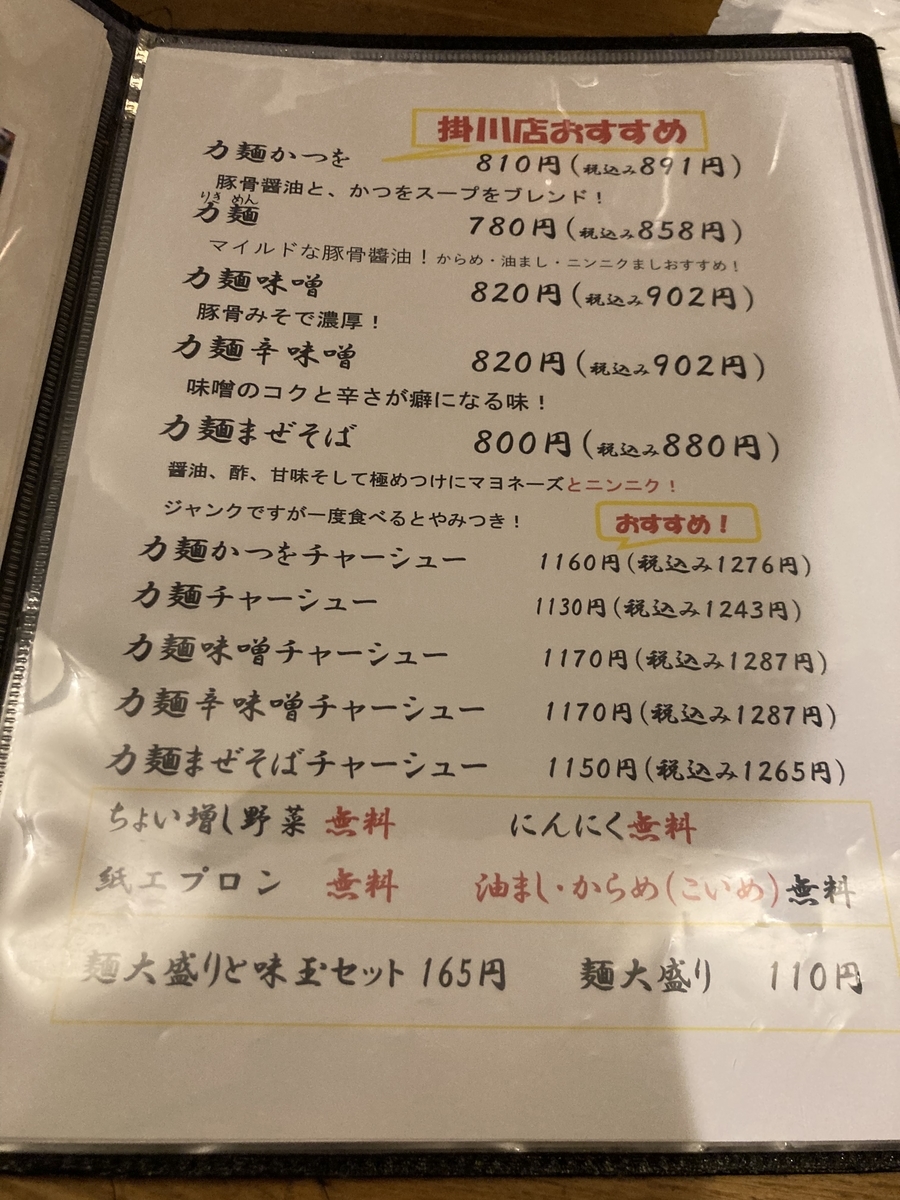 掛川店おすすめ
力麺かつを 810円(税込み891円)
豚骨醤油と、かつをスープをブレンド！
りき めん
力麺 780円(税込み858円)
マイルドな豚骨醤油！からめ・油まし・ニンニクましおすすめ！
力麺味噌 820円(税込み902円)
豚骨みそで濃厚！
力麺辛味噌 820円(税込み902円)
味噌のコクと辛さが癖になる味！
力麺まぜそば 800円(税込み880円)
醤油、酢、甘味そして極めつけにマヨネーズとニンニク！
ジャンクですが一度食べるとやみつき！
おすすめ！
力麺かつをチャーシュー 1160円(税込み1276円)
力麺チャーシュー 1130円(税込み1243円)
力麺味噌チャーシュー 1170円(税込み1287円)
力麺辛味噌チャーシュー 1170円(税込み1287円)
力麺まぜそばチャーシュー 1150円(税込み1265円)
ちょい増し野菜 無料 にんにく無料
紙エプロン 無料 油まし・からめ(こいめ)無料
麺大盛りと味玉セット 165円 麺大盛り 110円